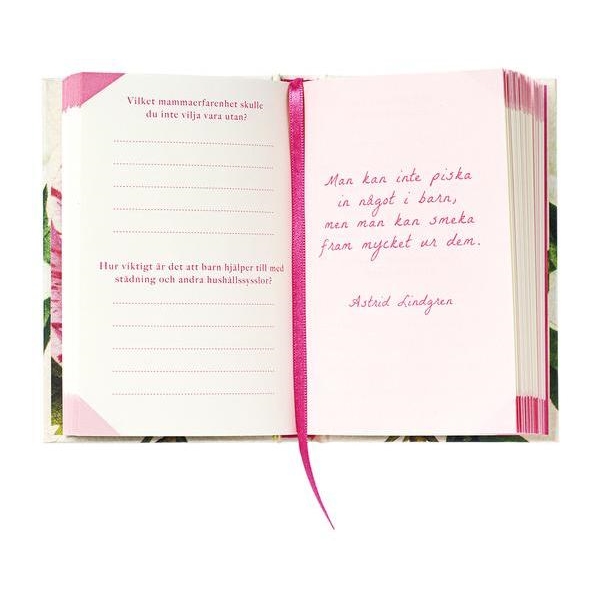 Vilket mammaerfarenhet skulle
du inte vilja vara utan?
Hur viktigt är det att barn hjälper till med
städning och andra hushållssysslor?
Man kan inte piska
in något i barn,
men man kan smeka
fram mycket ur dem.
Astrid Lindgren